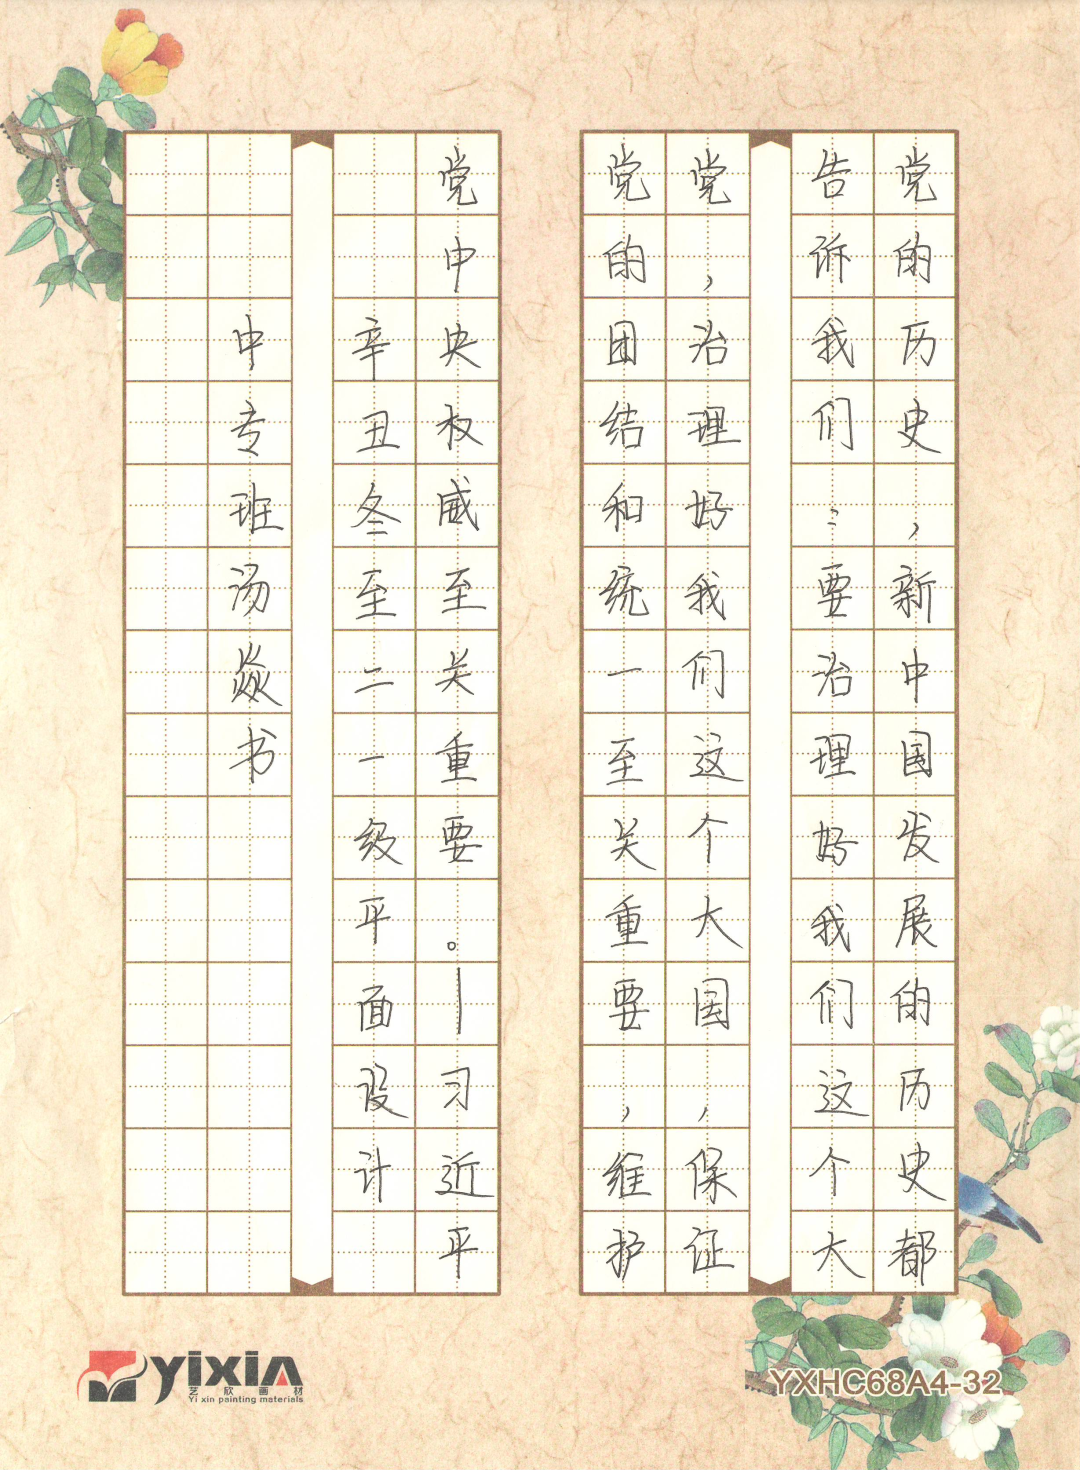 党的历史，新中国发展的历史都
告诉我们：要治理好我们这个大
党，治理好我们这个大国，保证
党的团结和统一至关重要，维护
党中央权威至关重要。—习近平
辛丑冬至二一级平面设计
中专班汤焱书
yixin
艺欣画材
Yi xin painting materials
YXHC68A4-32